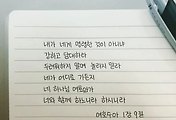 내가 네게 명령한 것이 아니냐
강하고 담대하라
두려워하지 말며 놀라지 말라
네가 어디로 가든지
네 하나님 여호와가
너와 함께 하느니라 하시니라
여호수아 1장 9절